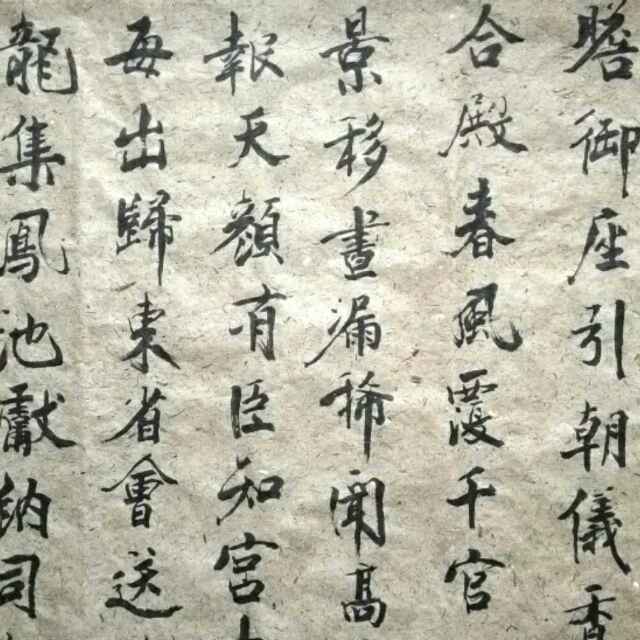 瞻御座引朝儀香
合殿春風覆千官
景移晝漏稀聞高
報天顏有臣知宮
每出歸東省會送
龍集鳳池獻納司